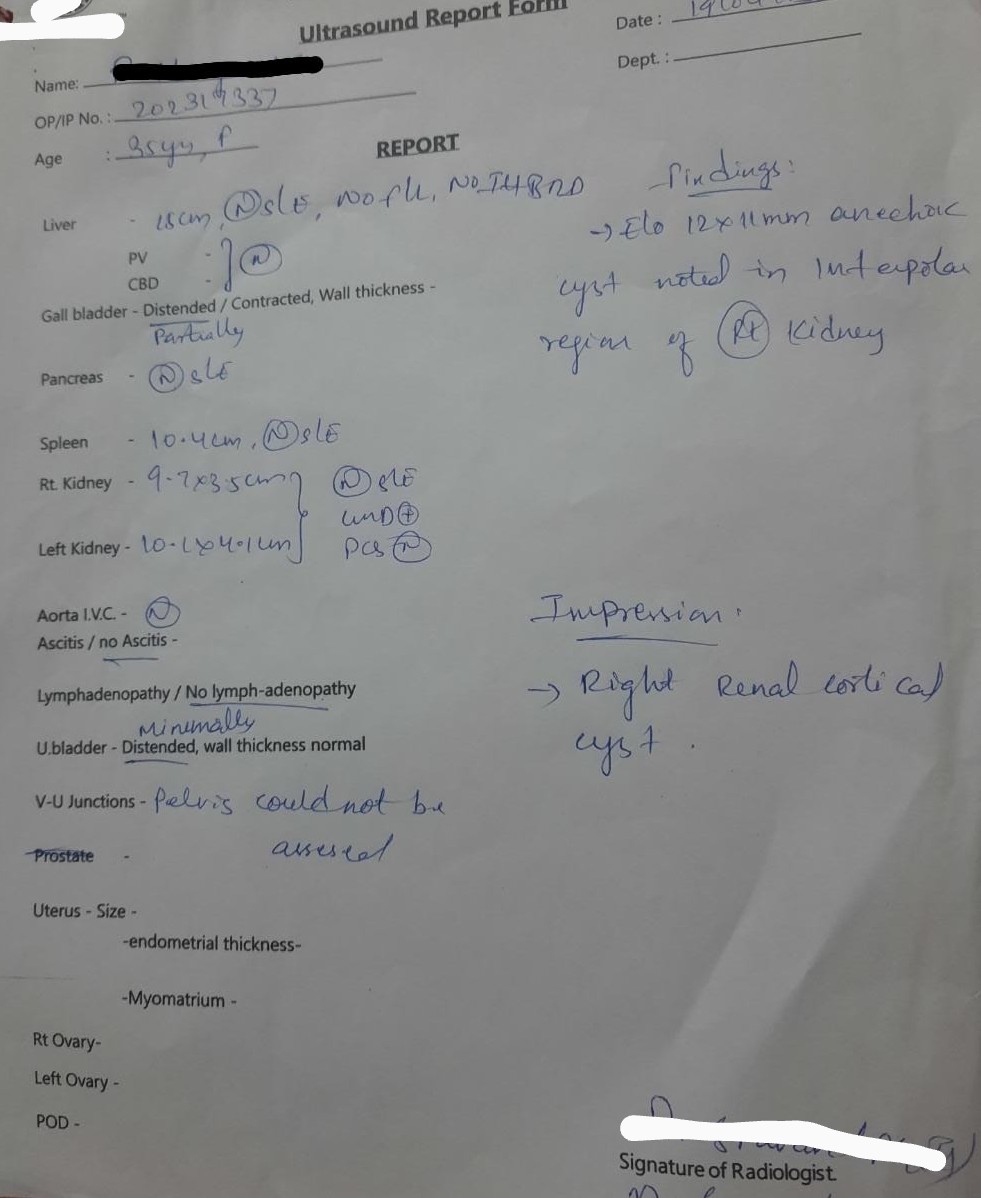 Ultrasound Report Form
Date :
Dept. :
Name:
OP/IP No. :
Age : 35yr, f
REPORT
Liver - 15cm, Ⓝ S/E, No FLL, No IHBRD
PV -
CBD - Ⓝ
Gall bladder - Distended / Contracted, Wall thickness -
Partially
Pancreas - Ⓝ S/E
Spleen - 10.4cm, Ⓝ S/E
Rt. Kidney - 9.7x3.5cm Ⓝ S/E
CMD ⊕
Left Kidney - 10.1x4.1cm PCS Ⓝ
Aorta I.V.C. - Ⓝ
Ascitis / no Ascitis -
Lymphadenopathy / No lymph-adenopathy
Minimally
U.bladder - Distended, wall thickness normal
V-U Junctions - Pelvis could not be
assessed
Prostate -
Uterus - Size -
-endometrial thickness-
-Myomatrium -
Rt Ovary-
Left Ovary -
POD -
Findings:
→ E/o 12x11mm anechoic
cyst noted in Interpolar
region of Rt Kidney
Impression:
→ Right Renal cortical
cyst.
Signature of Radiologist